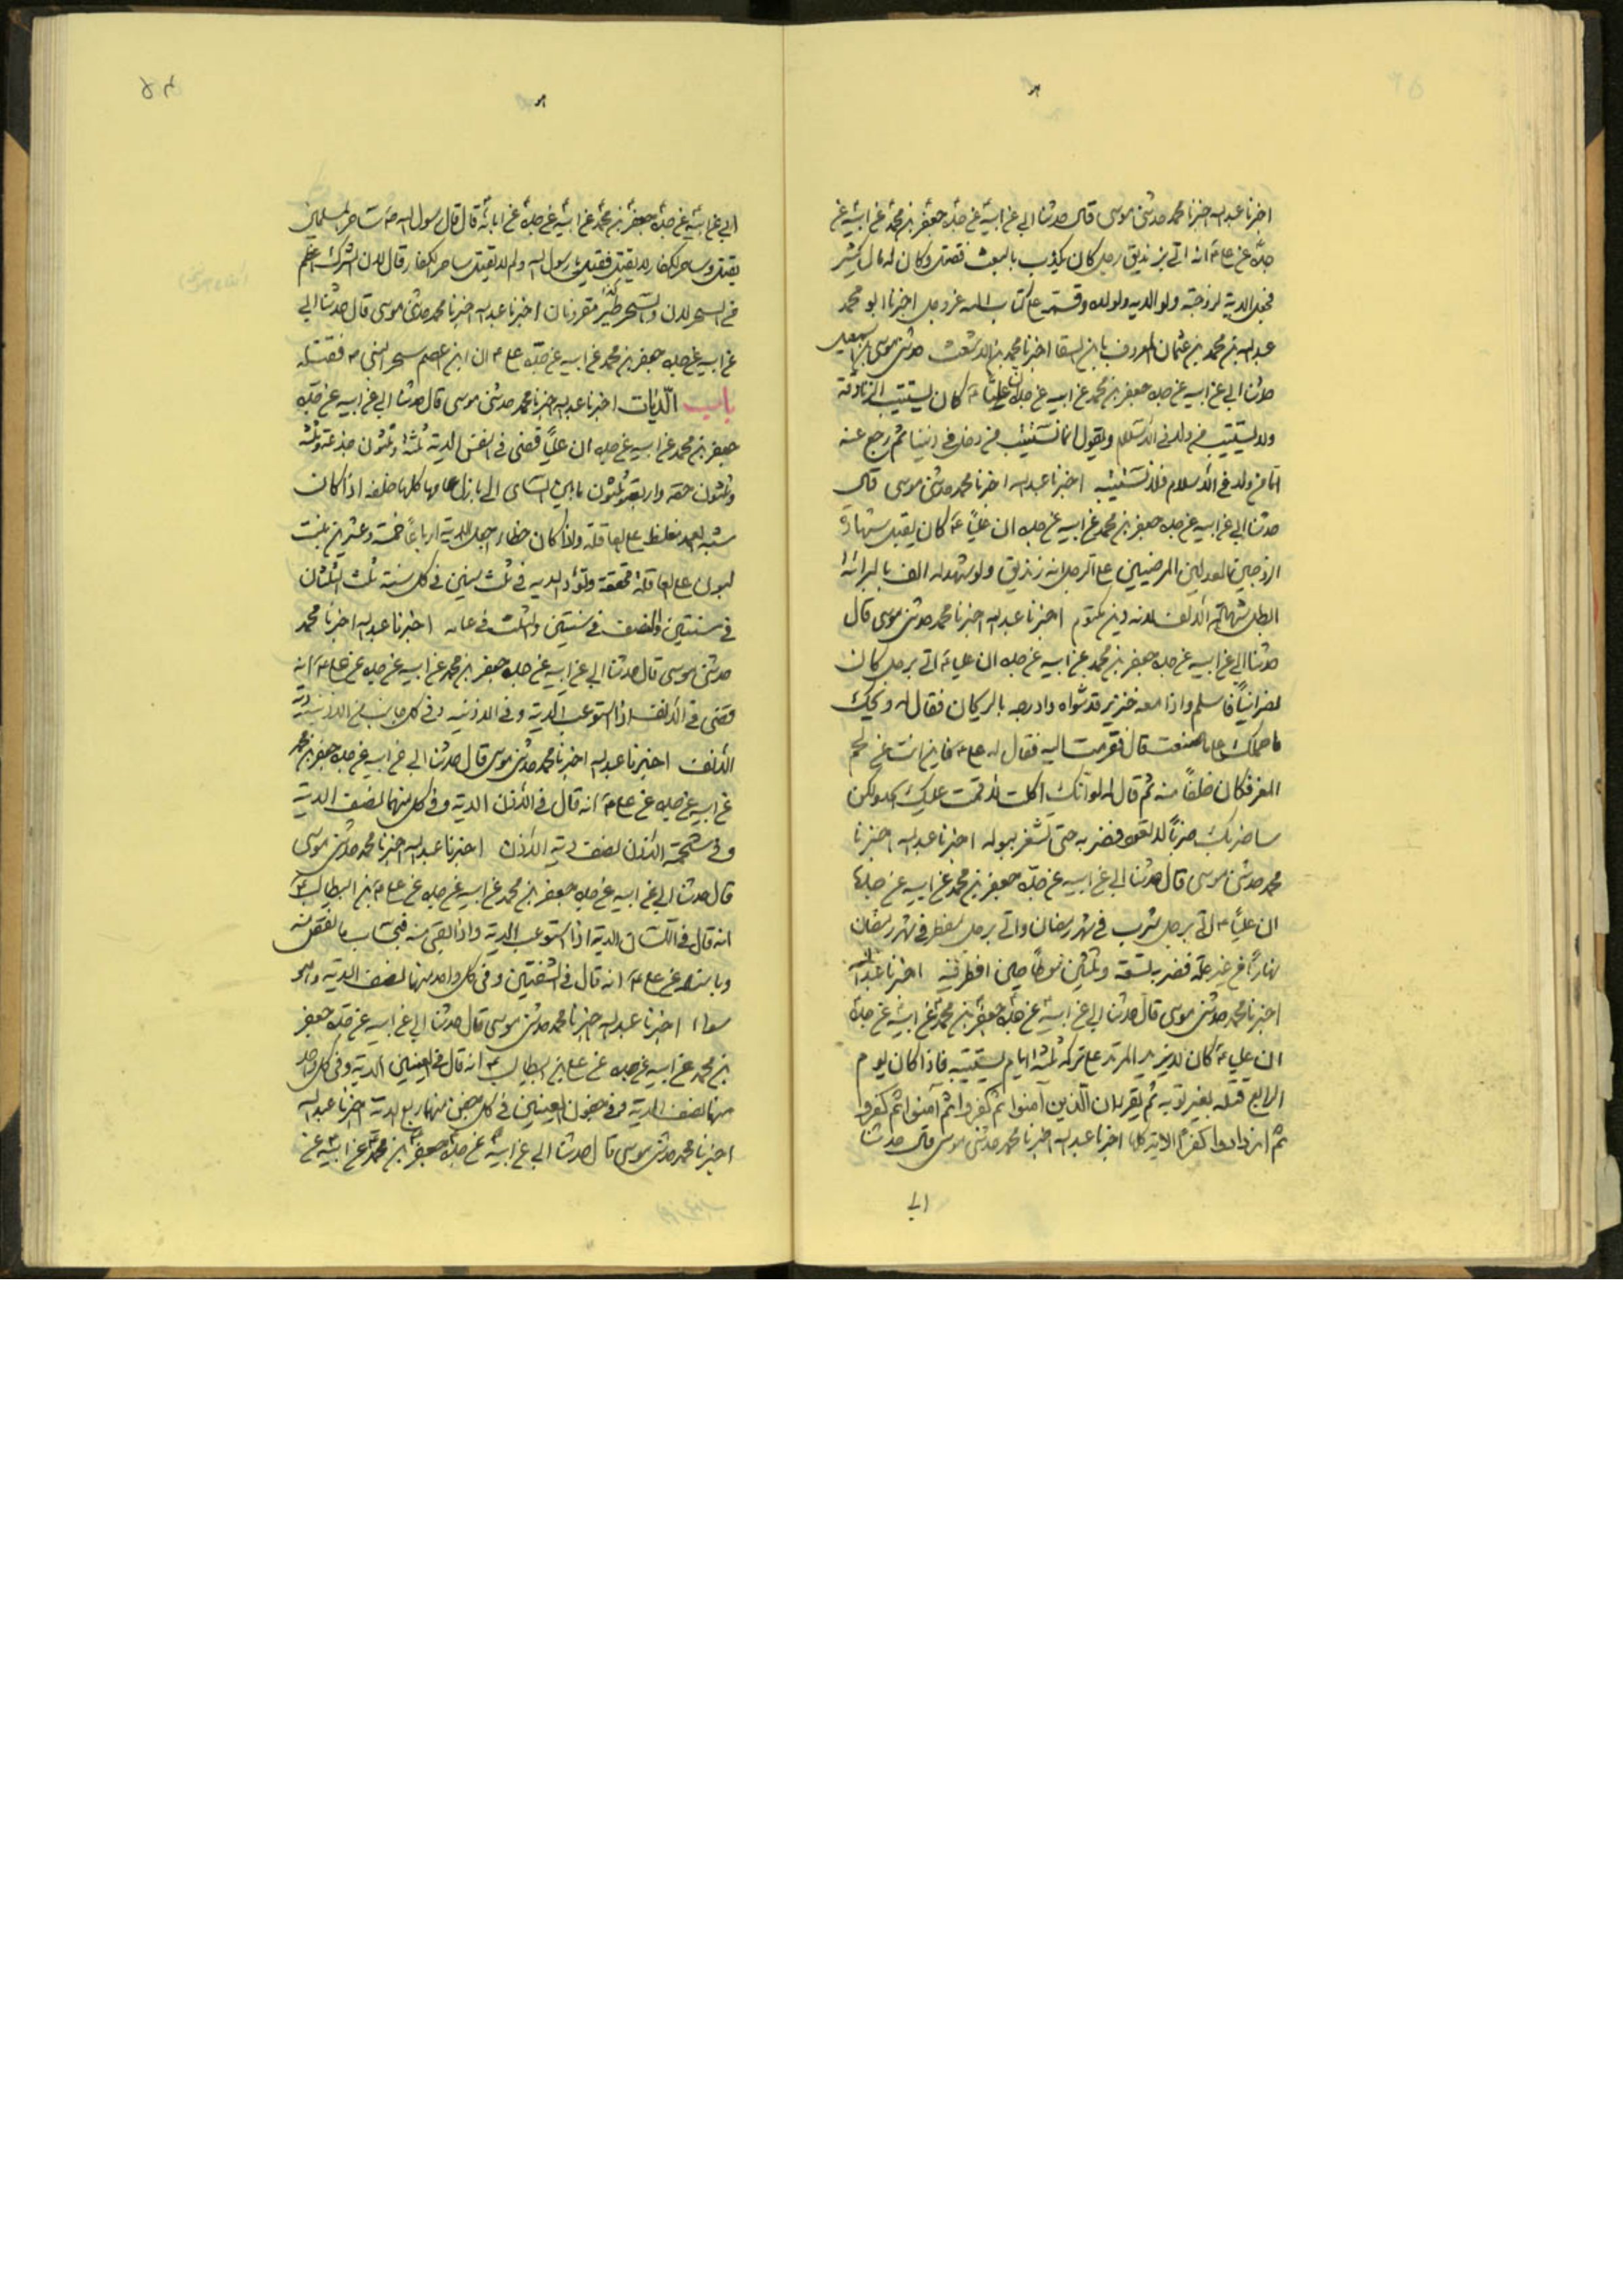 اخبرنا عبدالله اخبرنا محمد حدثنى موسى قال حدثنا ابى عن ابيه عن جده جعفر بن محمد عن ابيه عن
جده عن على ع انه اتى بزنديق رجل كان يكذب بالبعث فقتله وكان له مال كثير
فجعل الدية لزوجته ولوالديه ولولده وقسمه على كتاب الله عز وجل اخبرنا ابو محمد
عبدالله بن محمد بن عثمان المعروف بابن السقا اخبرنا محمد بن الاشعث حدثنى موسى بن اسمعيل
حدثنا ابى عن ابيه عن جده جعفر بن محمد عن ابيه عن جده ان عليا ع كان يستتيب الزنادقة
ولا يستتيب من ولد فى الاسلام ويقول انما نستتيب من دخل فى ديننا ثم رجع عنه
اما من ولد فى الاسلام فلا نستتيبه اخبرنا عبدالله اخبرنا محمد حدثنى موسى قال
حدثنا ابى عن ابيه عن جده جعفر بن محمد عن ابيه عن جده ان عليا ع كان يقبل شهادة
الرجلين العدلين المرضيين على الرجل انه زنديق ولو شهد له الف بالبرائة
ابطل شهادة الالف لانه دين مكتوم اخبرنا عبدالله اخبرنا محمد حدثنى موسى قال
حدثنا ابى عن ابيه عن جده جعفر بن محمد عن ابيه عن جده ان عليا ع اتى برجل كان
نصرانيا فاسلم واذا معه خنزير قد شواه وادرجه بالريحان فقال له ويحك
ما حملك على ما صنعت قال فقرمت اليه فقال له على ع فاين انت عن لحم
المعز فكان خلفا منه ثم قال له لو انك اكلته لاقمت عليك الحد ولكن
ساضربك ضربا لا تعود فضربه حتى شغر ببوله اخبرنا عبدالله اخبرنا
محمد حدثنى موسى قال حدثنا ابى عن ابيه عن جده جعفر بن محمد عن ابيه عن جده
ان عليا ع اتى برجل شرب فى شهر رمضان واتى برجل مفطر فى شهر رمضان
نهارا من غير علة فضربه تسعة وثلثين سوطا حين افطر فيه اخبرنا عبدالله
اخبرنا محمد حدثنى موسى قال حدثنا ابى عن ابيه عن جده جعفر بن محمد عن ابيه عن جده
ان على ع كان لا يزيد المرتد على تركه ثلثة ايام يستتيبه فاذا كان يوم
الرابع قتله بغير توبة ثم يقرء ان الذين آمنوا ثم كفروا ثم آمنوا ثم كفروا
ثم ازدادوا كفرا الاية كلها اخبرنا عبدالله اخبرنا محمد حدثنى موسى قال حدثنا
ابى
ابى عن ابيه عن جده جعفر بن محمد عن ابيه عن جده عن ابائه قال قال رسول الله ص ساحر المسلمين
يقتل وساحر الكفار لا يقتل فقيل يا رسول الله ولم لا يقتل ساحر الكفار قال لان الشرك اعظم
من السحر لان والسحر مقرونان اخبرنا عبدالله اخبرنا محمد حدثنى موسى قال حدثنا ابى
عن ابيه عن جده جعفر بن محمد عن ابيه عن جده على ع ان ابن اعصم سحر النبى ص فقتله
باب الديات اخبرنا عبدالله اخبرنا محمد حدثنى موسى قال حدثنا ابى عن ابيه عن جده
جعفر بن محمد عن ابيه عن جده ان عليا قضى فى النفس الدية ثلثة وثلثون جذعة وثلثة
وثلثون حقة واربعة وثلثون ما بين الثنى الى بازل عامها كلها خلفه اذا كان
شبه العمد مغلظ على العاقلة واذا كان خطاء جعل الدية ارباعا خمسة وعشرين بنت
لبون على العاقلة مخففة وتؤد الدية فى ثلث سنين فى كل سنة ثلث الثلثان
فى سنتين والنصف فى سنتين والثلث فى عامه اخبرنا عبدالله اخبرنا محمد
حدثنى موسى قال حدثنا ابى عن ابيه عن جده جعفر بن محمد عن ابيه عن جده عن على ع انه
قضى فى الانف اذا استوعب الدية وفى الارنبه وفى كل جانب من الارنبة دية
الانف اخبرنا عبدالله اخبرنا محمد حدثنى موسى قال حدثنا ابى عن ابيه عن جده جعفر بن محمد
عن ابيه عن جده عن على ع انه قال فى الاذن الدية وفى كل منهما نصف الدية
وفى شحمة الاذن نصف دية الاذن اخبرنا عبدالله اخبرنا محمد حدثنى موسى
قال حدثنا ابى عن ابيه عن جده جعفر بن محمد عن ابيه عن جده عن على بن ابيطالب ع
انه قال فى اللسان الدية اذا استوعب الدية واذا بقى منه فبحساب ما نقص منه
وباسناده عن على ع انه قال فى الشفتين وفى كل واحد منهما نصف الدية وهو
سواء اخبرنا عبدالله اخبرنا محمد حدثنى موسى قال حدثنا ابى عن ابيه عن جده جعفر
بن محمد عن ابيه عن جده عن على بن ابيطالب ع انه قال فى العينين الدية وفى كل واحد
منهما نصف الدية وفى جفون العينين فى كل جفن منها ربع الدية اخبرنا عبدالله
اخبرنا محمد حدثنى موسى قال حدثنا ابى عن ابيه عن جده جعفر بن محمد عن ابيه عن